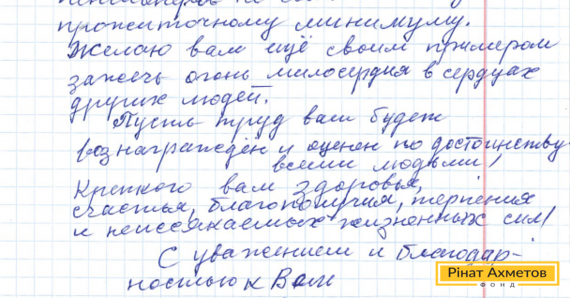 прожиточному минимуму.
Желаю вам ещё своим примером
зажечь огонь милосердия в сердцах
других людей.
Пусть труд ваш будет
вознаграждён и оценен по достоинству
всеми людьми!
Крепкого вам здоровья,
счастья, благополучия, терпения
и неиссякаемых жизненных сил!
С уважением и благодар-
ностью к Вам
Рінат Ахметов
ФОНД